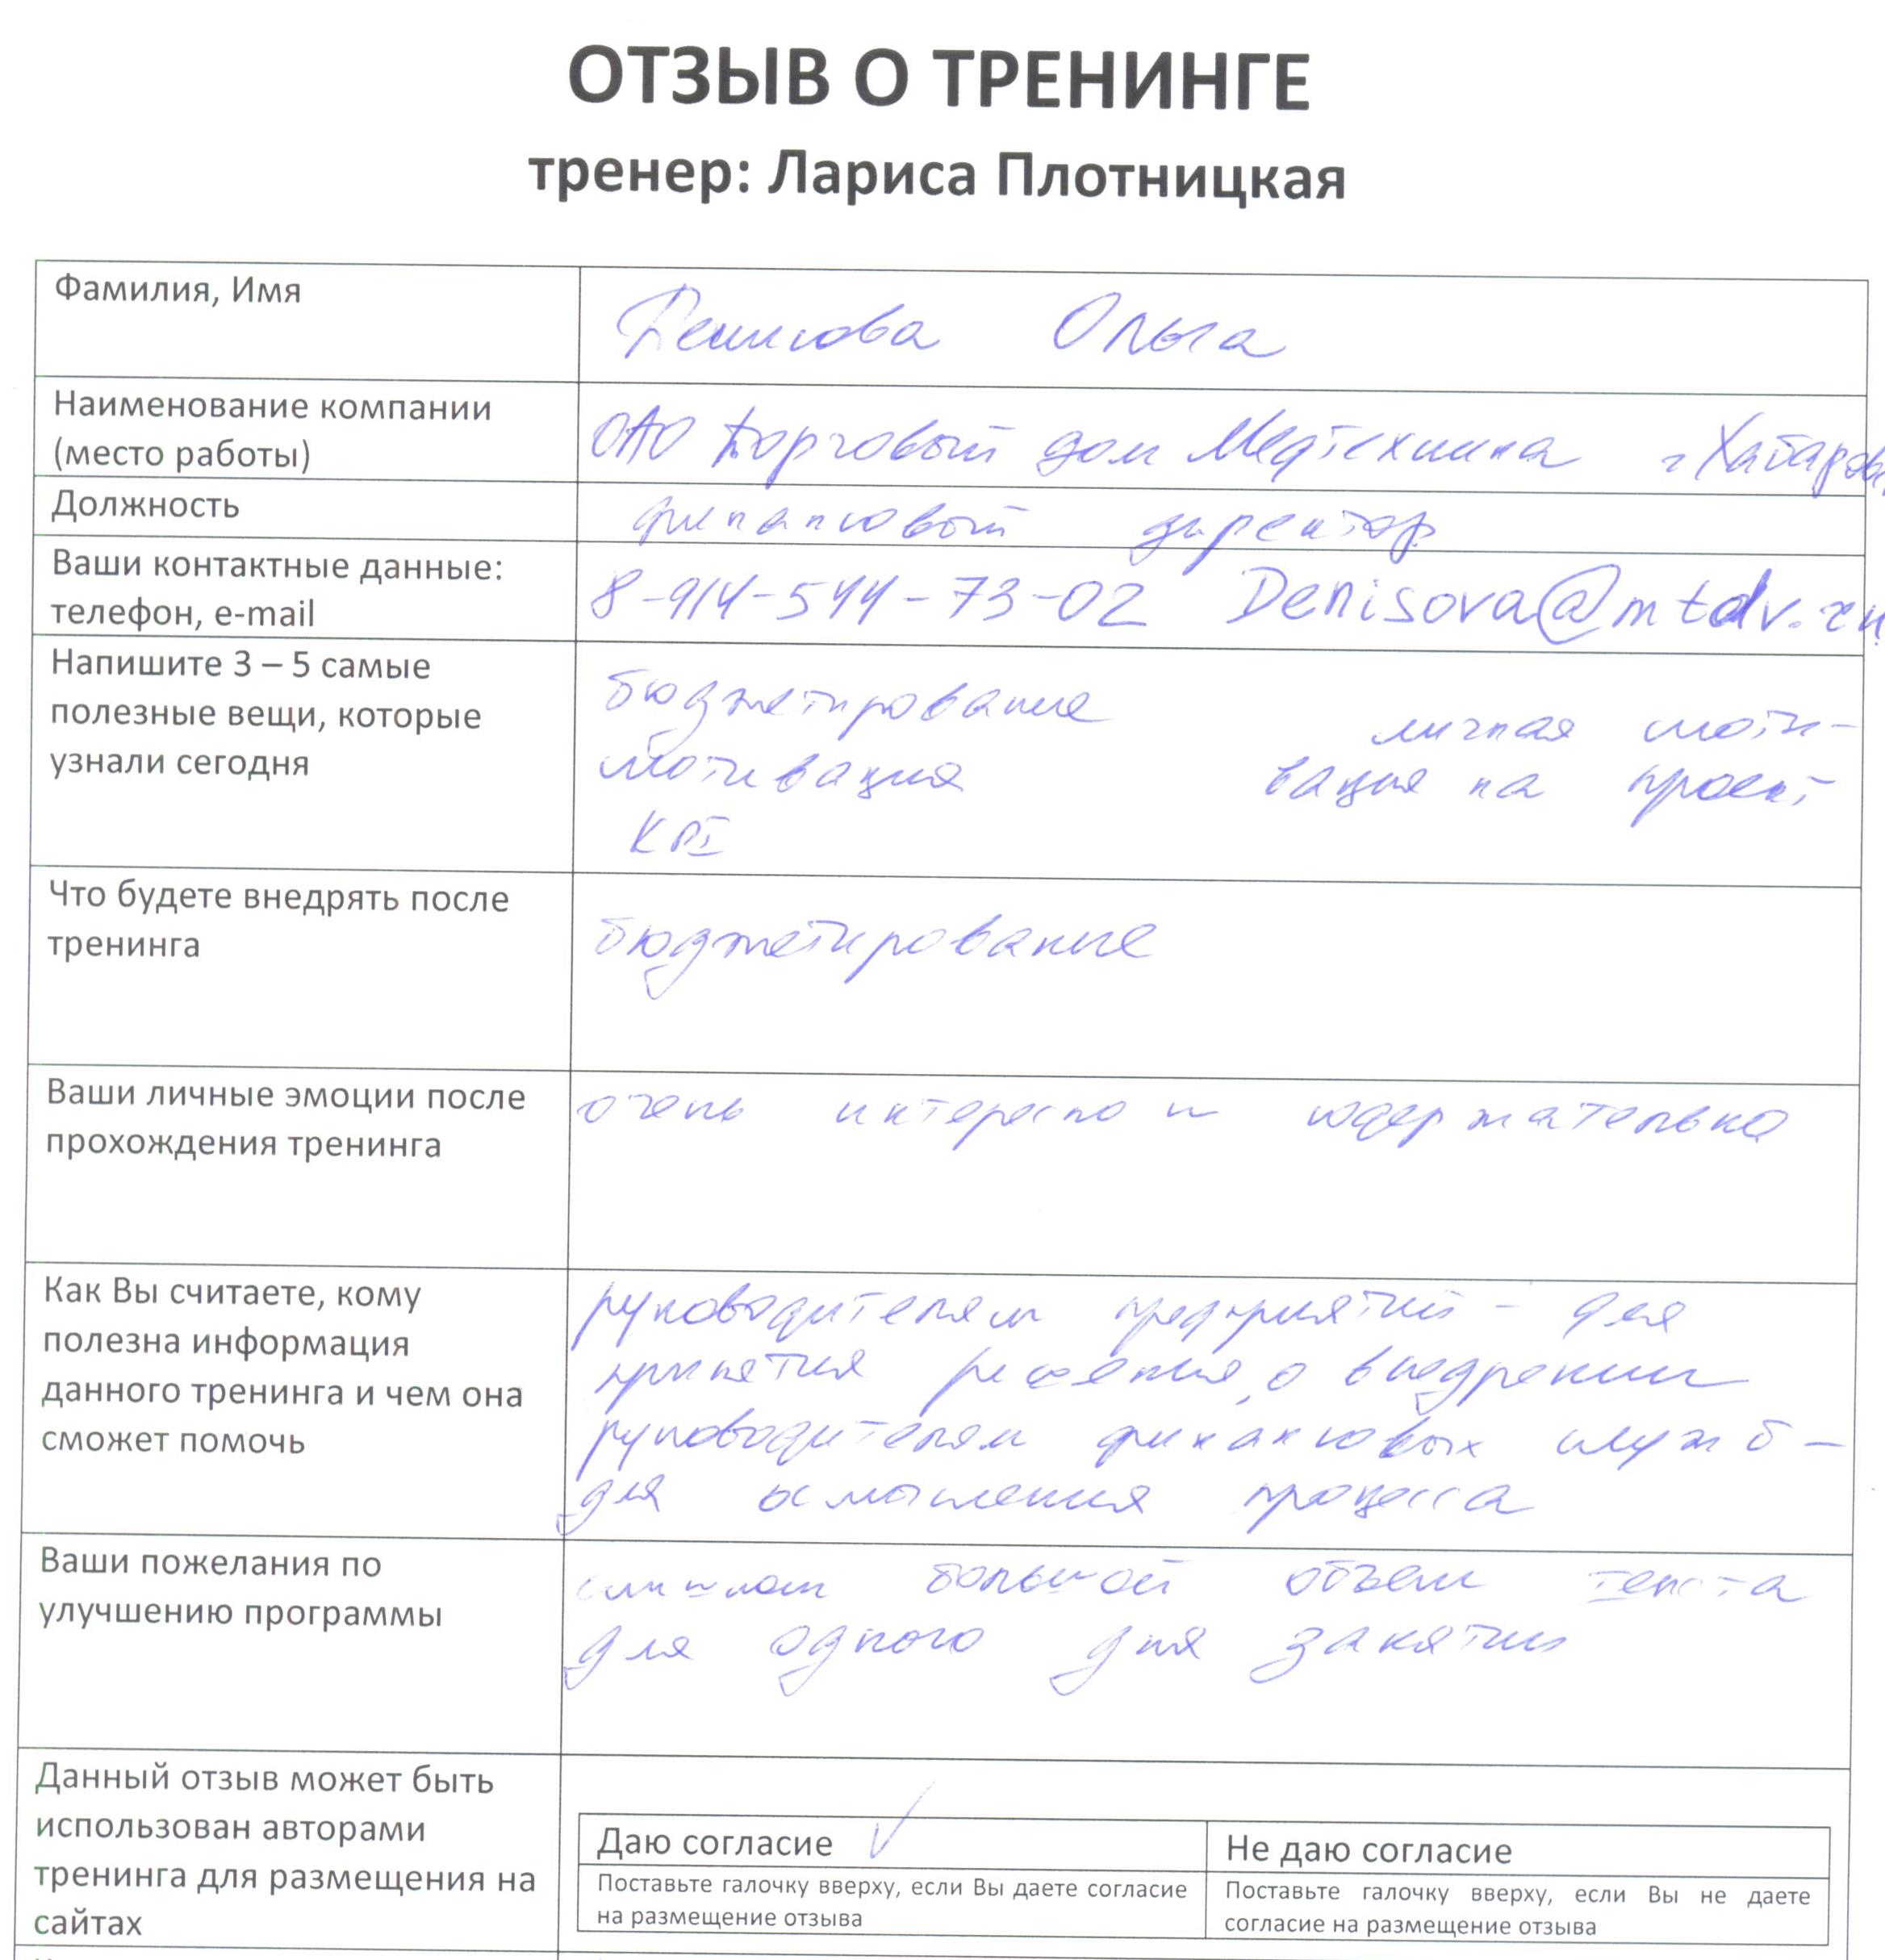 ОТЗЫВ О ТРЕНИНГЕ
тренер: Лариса Плотницкая
Фамилия, Имя
Денисова Ольга
Наименование компании
(место работы)
ОАО Торговый дом Медтехника г Хабаров
Должность
финансовый директор
Ваши контактные данные:
телефон, e-mail
8-914-544-73-02 Denisova@mtdv.ru
Напишите 3 – 5 самые
полезные вещи, которые
узнали сегодня
бюджетирование
мотивация
KPI
личная моти-
вация на проект
Что будете внедрять после
тренинга
бюджетирование
Ваши личные эмоции после
прохождения тренинга
очень интересно и содержательно
Как Вы считаете, кому
полезна информация
данного тренинга и чем она
сможет помочь
руководителям предприятий - для
принятия решения о внедрении
руководителям финансовых служб -
для осмысления процесса
Ваши пожелания по
улучшению программы
слишком большой объем текста
для одного дня занятий
Данный отзыв может быть
использован авторами
тренинга для размещения на
сайтах
Даю согласие ✓
Поставьте галочку вверху, если Вы даете согласие
на размещение отзыва
Не даю согласие
Поставьте галочку вверху, если Вы не даете
согласие на размещение отзыва